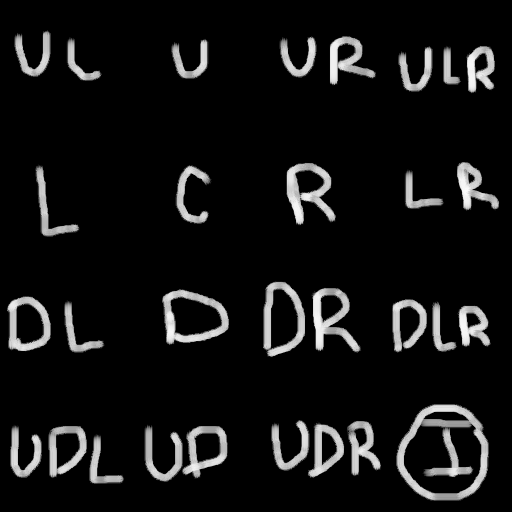 UL U UR ULR
L C R LR
DL D DR DLR
UDL UD UDR I